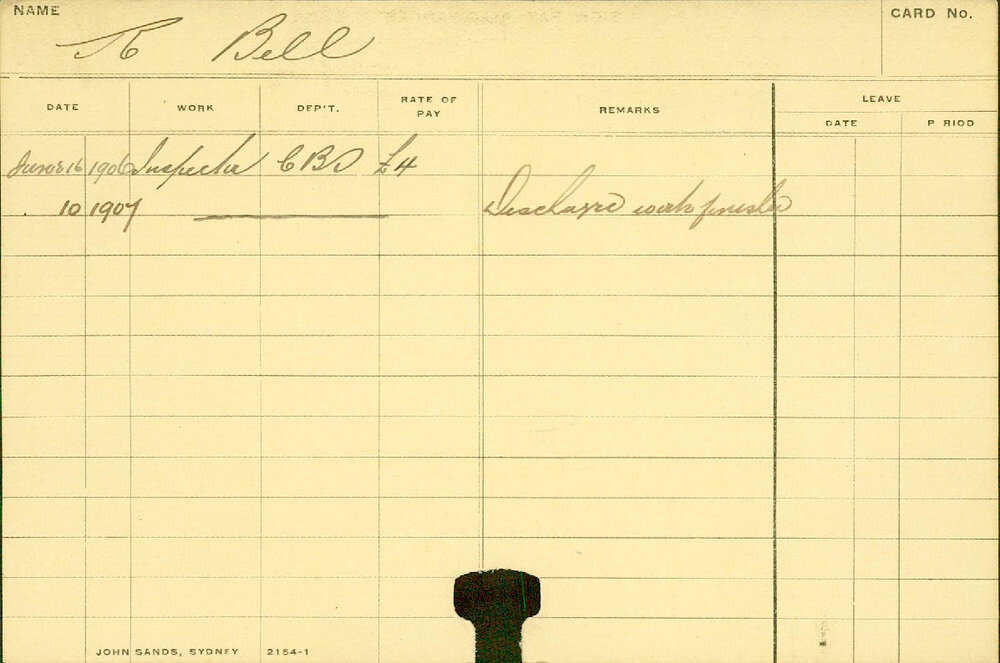 NAME
R Bell
CARD No.
DATE WORK DEP'T. RATE OF PAY REMARKS LEAVE
DATE P RIOD
June 16 1906 Inspector CBD £4
10 1907 Discharged work finished
JOHN SANDS, SYDNEY 2154-1